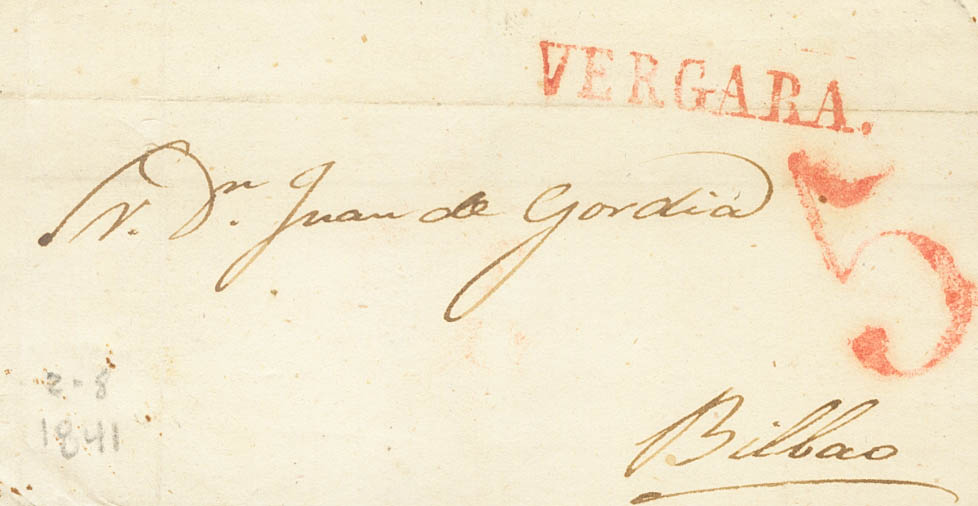 VERGARA.
5
Sr. Dn. Juan de Gordia
2-8
1841
Bilbao